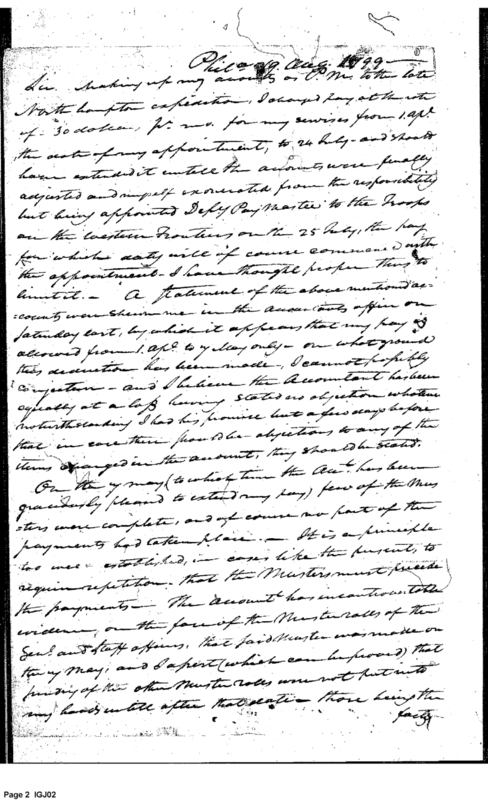 Phila. Aug. 1799
Sir, Making up my accounts as P Mr to the late
Northampton expedition, I charged pay at the rate
of 30 dollars Pr. mo. for my services from 1. apl.
the date of my appointment, to 24 July - and should
have extended it untill the accounts were finally
adjusted and myself exonerated from the responsibility
but being appointed Depy Pay Master to the Troops
on the Western Frontiers on the 25 July, the pay
for which duty will of course commence with
the appointment - I have thought proper thus to
limit it. - A Statement of the above mentioned ac=
=counts were shewn me in the Accountants office on
Saturday last, by which it appears that my pay is
allowed from 1. apl. to 9 May only - on what ground
this deduction has been made, I cannot possibly
conjecture - and I believe the Accountant has been
equally at a loss having stated no objection whatever
notwithstanding I had his promise but a few days before
that in case there should be objections to any of the
items charged in the account, they should be stated.
On the 9 may (to which time the Acct. has been
graciously pleased to extend my pay) few of the Mus
=ters were complete, and of course no part of the
payments had taken place. - It is a principle
too well established, in cases like the present, to
require repetition - that the Musters must precede
the payments - The Accountt. has incontrovertable
evidence, on the face of the Muster rolls of the
Genl. and Staff officers, that said Muster was made on
the 9 May, and I assert (which can be proved) that
of the other Muster rolls were not put into
my hands untill after that date - those being the
facts
Page 2 IGJ02